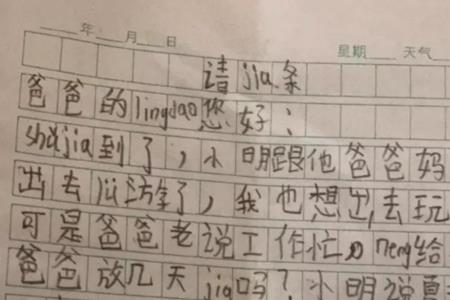 年 月 日
星期 天气
请jia条
爸爸的lingdao您好：
shǔjia到了，小明跟他爸爸妈
出去lü游了，我也想出去玩
可是爸爸老说工作忙 neng给
爸爸放几天jia吗？小明说